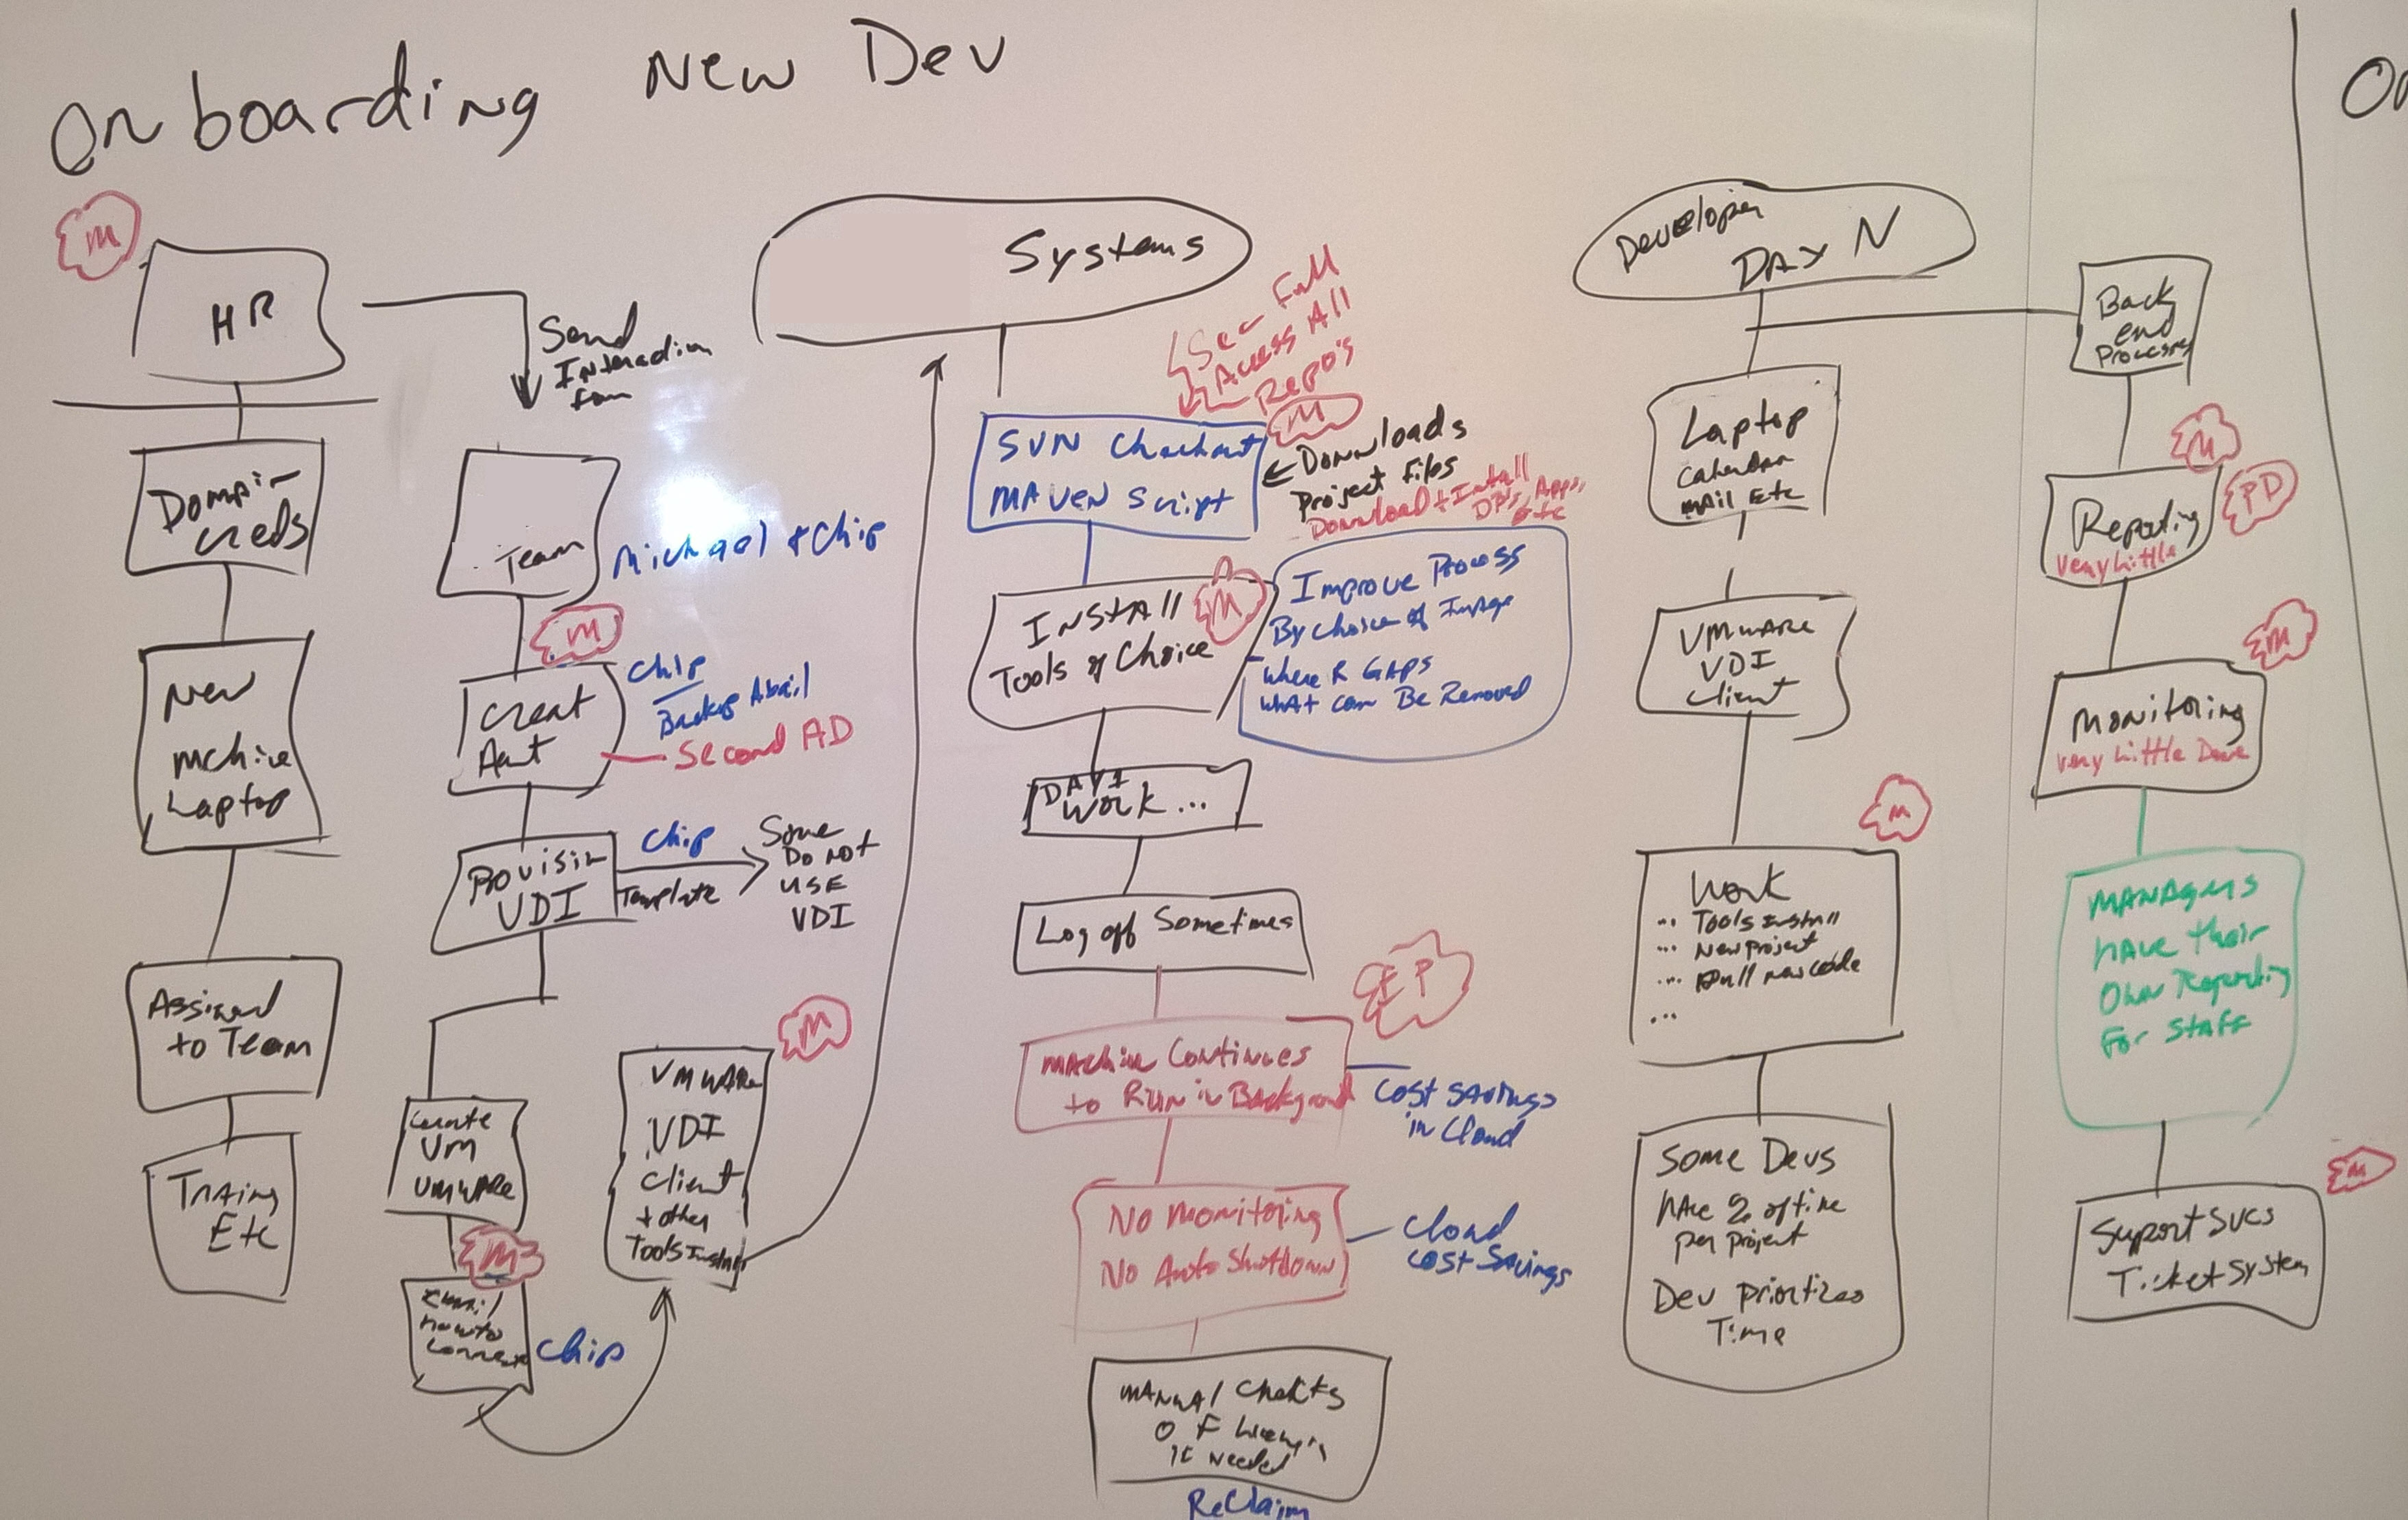 Onboarding New Dev
M
HR
Send
Domain
Creds
New
Mchine
Laptop
Assigned
to Team
Traing
Etc
Team
Michael & Chip
M
Creat
Acnt
Chip
Backup Abail
Second AD
Provisin
VDI
Chip
Template
Some
Do not
USE
VDI
Create
VM
VMWARE
M
Email
How to
Connect
Chip
M
VMWARE
VDI
Client
+ other
Tools Install
Systems
Full
Access All
Repo's
M
SVN Checkout
MAVEN Script
Downloads
Project Files
Download + Install
Apps,
Etc
Install
Tools of Choice
M
Improve Process
By Choice of Image
Where R GAPS
What can Be Removed
DAY 1
Work ...
Log off Sometimes
P
Machine Continues
to Run in Background
Cost Savings
in Cloud
No Monitoring
No Auto Shutdown
Cloud
Cost Savings
MANUAL Checks
OF
if Needed
ReClaim
Developer
DAY N
Laptop
Calendar
Mail Etc
VMWARE
VDI
Client
M
Work
... Tools Install
... New Project
... Pull new code
...
Some Devs
have % of time
per project
Dev prioritizes
Time
Back
end
Processes
M
Reporting
Very Little
PD
M
Monitoring
Very Little Done
Managers
have their
Own Reporting
For Staff
M
Suport SVCS
Ticket System
On